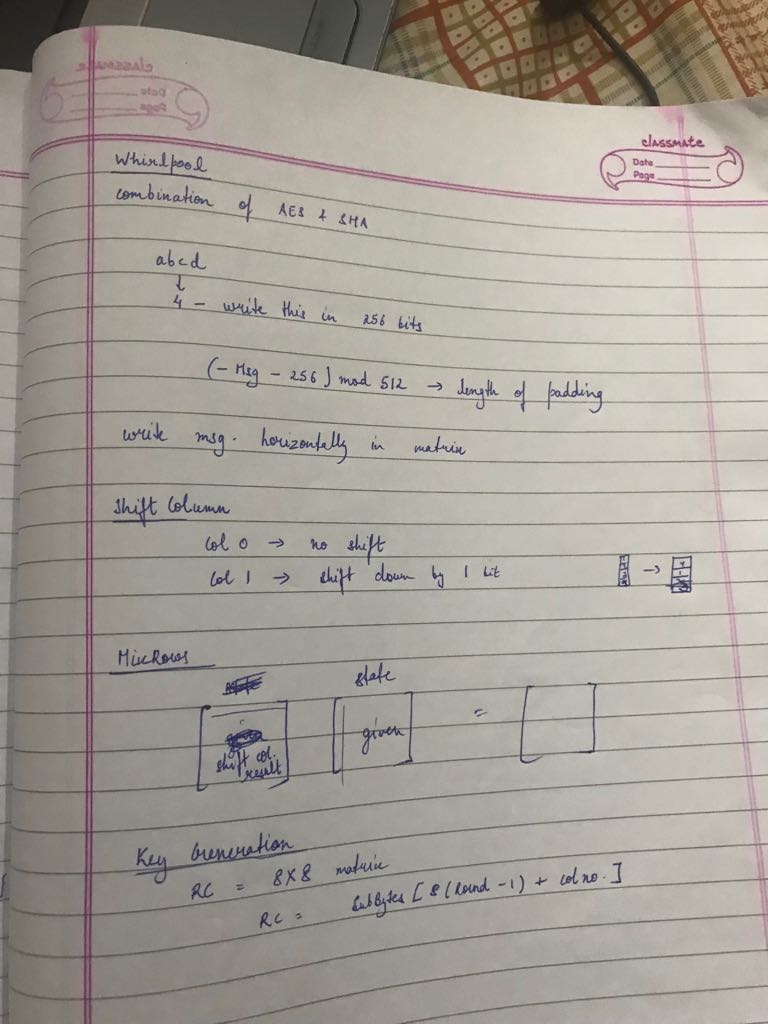 classmate
Date
Page
classmate
Date
Page
Whirlpool
combination of AES + SHA
abcd
↓
4 – write this in 256 bits
(– Msg – 256) mod 512 → length of padding
write msg. horizontally in matrix
Shift Column
col 0 → no shift
col 1 → shift down by 1 bit
Mix Rows
state
shift col. result
given
=
Key Generation
RC = 8X8 matrix
RC = SubBytes [8(Round –1) + col no.]